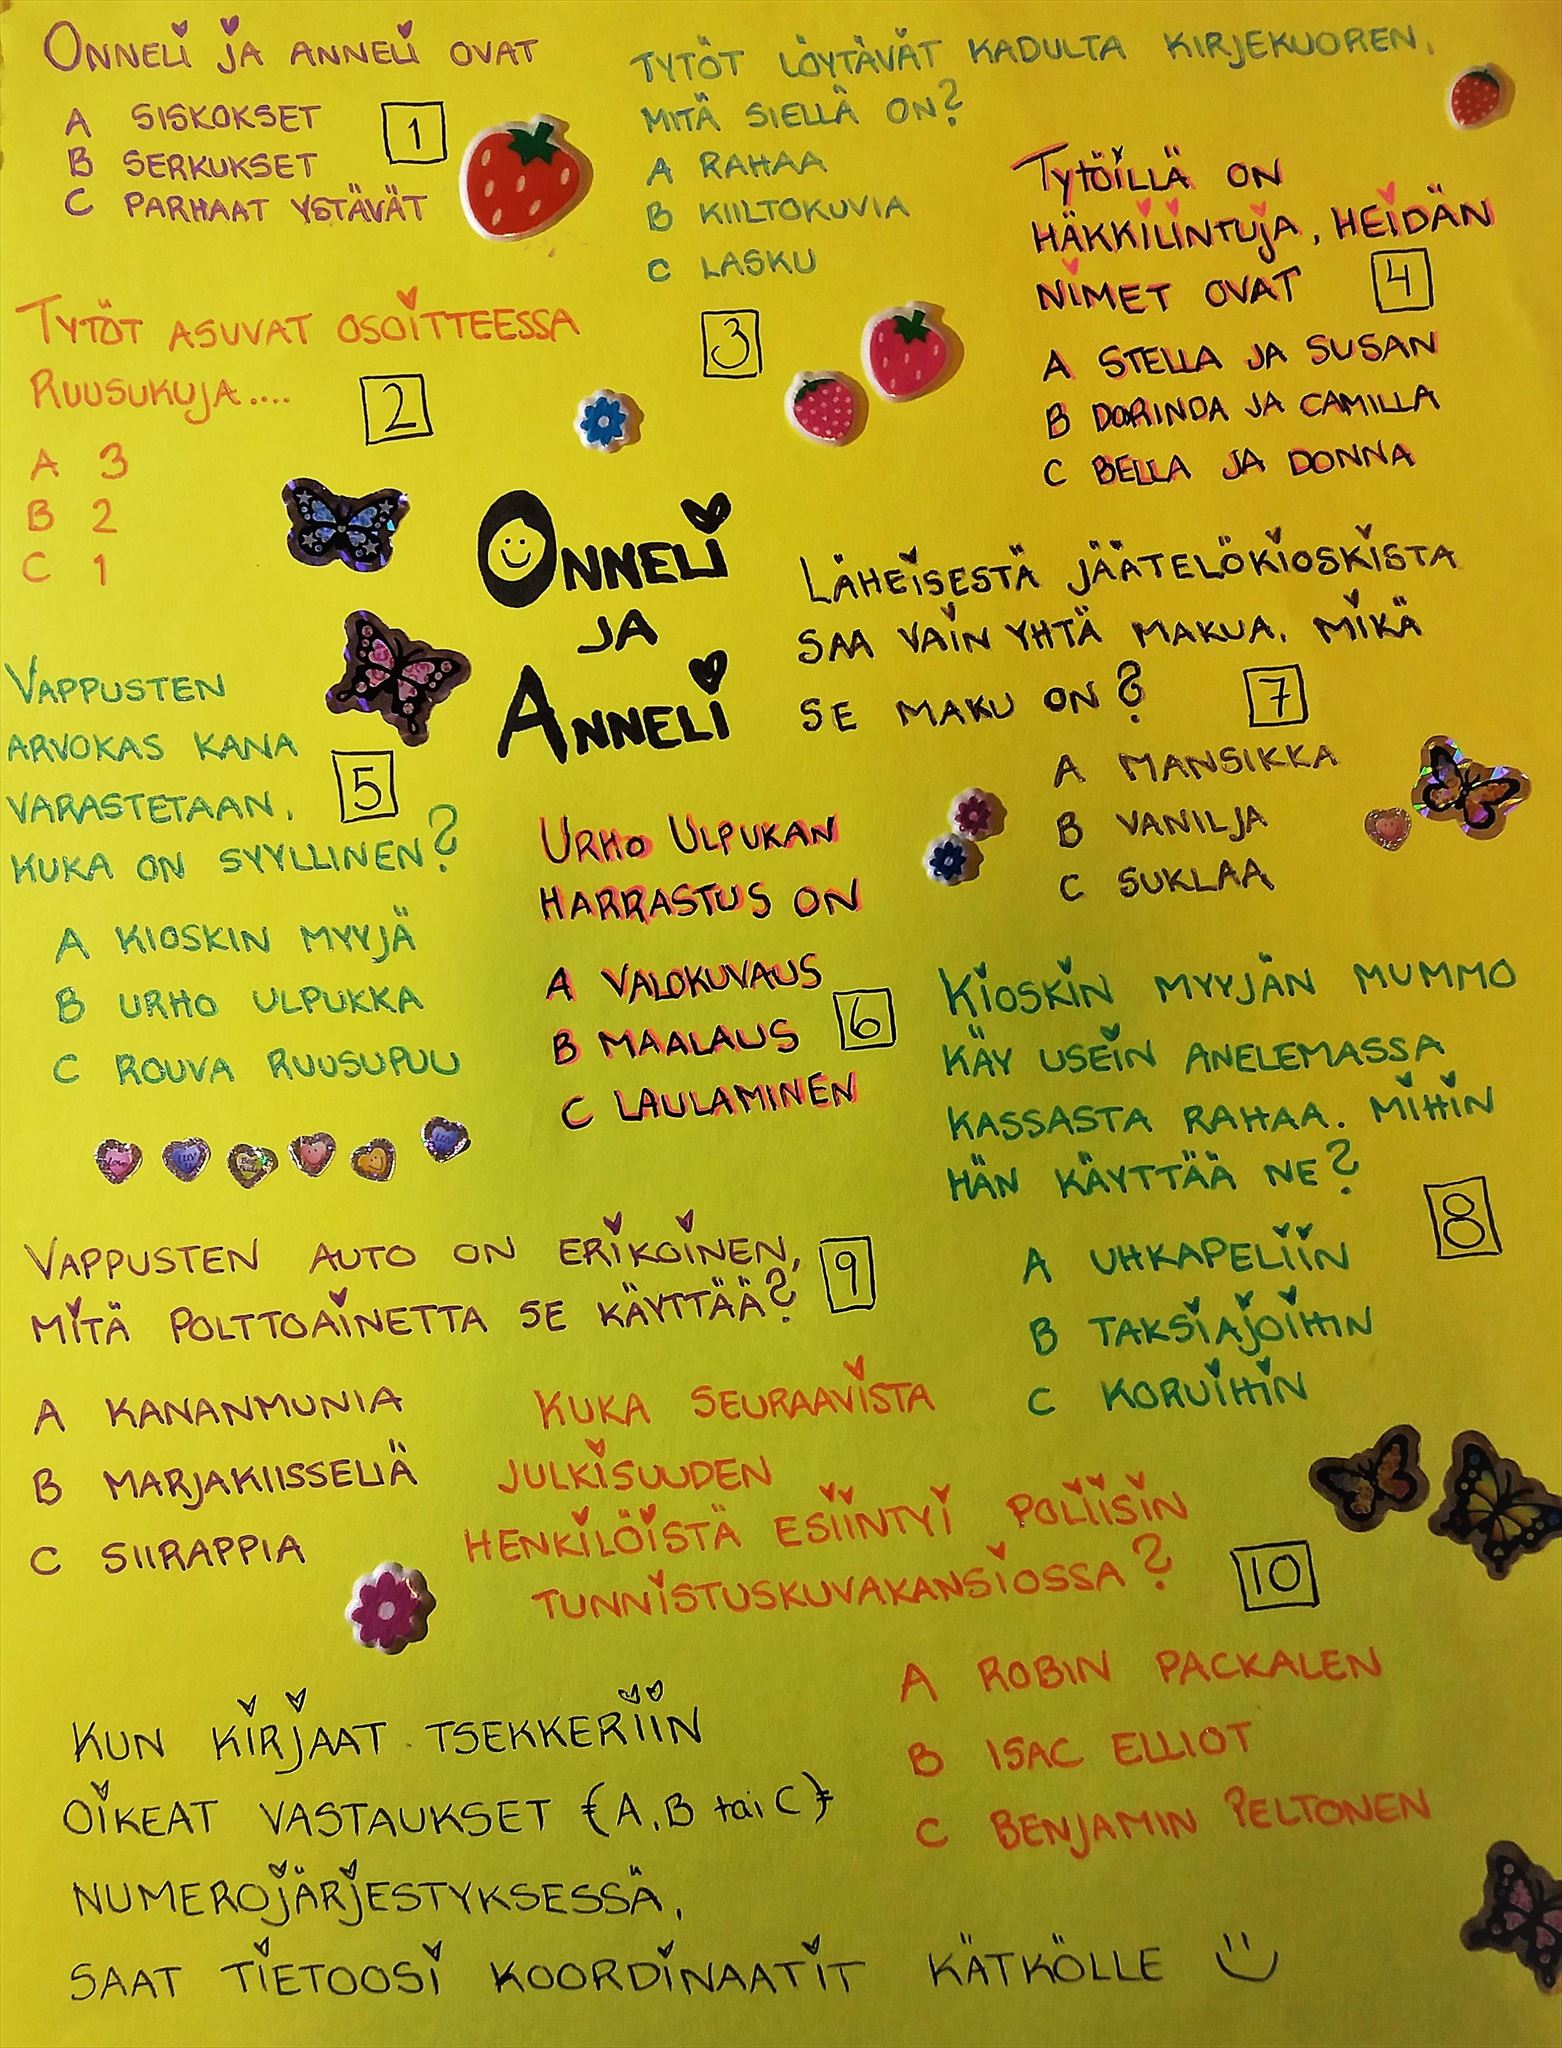 ONNELI JA ANNELI OVAT
A SISKOKSET
B SERKUKSET
C PARHAAT YSTÄVÄT
1
TYTÖT ASUVAT OSOITTEESSA
RUUSUKUJA....
2
A 3
B 2
C 1
TYTÖT LÖYTÄVÄT KADULTA KIRJEKUOREN.
MITÄ SIELLÄ ON?
A RAHAA
B KIILTOKUVIA
C LASKU
3
TYTÖILLÄ ON
HÄKKILINTUJA, HEIDÄN
NIMET OVAT
4
A STELLA JA SUSAN
B DORINDA JA CAMILLA
C BELLA JA DONNA
ONNELI
JA
ANNELI
VAPPUSTEN
ARVOKAS KANA
VARASTETAAN.
KUKA ON SYYLLINEN?
5
A KIOSKIN MYYJÄ
B URHO ULPUKKA
C ROUVA RUUSUPUU
URHO ULPUKAN
HARRASTUS ON
A VALOKUVAUS
B MAALAUS
C LAULAMINEN
6
LÄHEISESTÄ JÄÄTELÖKIOSKISTA
SAA VAIN YHTÄ MAKUA. MIKÄ
SE MAKU ON?
7
A MANSIKKA
B VANILJA
C SUKLAA
KIOSKIN MYYJÄN MUMMO
KÄY USEIN ANELEMASSA
KASSASTA RAHAA. MIHIN
HÄN KÄYTTÄÄ NE?
8
A UHKAPELIIN
B TAKSIAJOIHIN
C KORUIHIN
VAPPUSTEN AUTO ON ERIKOINEN,
MITÄ POLTTOAINETTA SE KÄYTTÄÄ?
9
A KANANMUNIA
B MARJAKIISSELIÄ
C SIIRAPPIA
KUKA SEURAAVISTA
JULKISUUDEN
HENKILÖISTÄ ESIINTYI POLIISIN
TUNNISTUSKUVAKANSIOSSA?
10
A ROBIN PACKALEN
B ISAC ELLIOT
C BENJAMIN PELTONEN
KUN KIRJAAT TSEKKERIIN
OIKEAT VASTAUKSET (A, B tai C)
NUMEROJÄRJESTYKSESSÄ,
SAAT TIETOOSI KOORDINAATIT KÄTKÖLLE